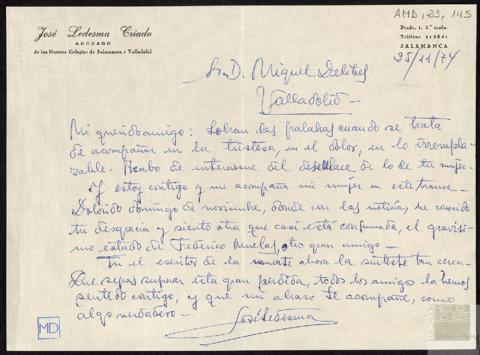 AMD, 23, 145
José Ledesma Criado
ABOGADO
de los Ilustres Colegios de Salamanca y Valladolid
Prado, 1, 2.º izqda
Teléfono
SALAMANCA
25/11/74
Sr. D. Miguel Delibes
Valladolid
Mi querido amigo: Sobran las palabras cuando se trata
de acompañar en la tristeza, en el dolor, en lo irrempla-
zable. Acabo de enterarme del desenlace de lo de tu mujer
Y estoy contigo y me acompaña mi mujer en este trance.
Dolorido domingo de noviembre, donde con las noticias, he conocido
tu desgracia y siento otra que casi está confirmada, el gravísi-
mo estado de Federico Muelas, otro gran amigo
Tu el escritor de la muerte ahora la sientes tan cerca.
Que sepas superar esta gran pérdida, todos los amigos la hemos
sentido contigo, y que mi abrazo te acompañe, como
algo verdadero
José Ledesma
MD